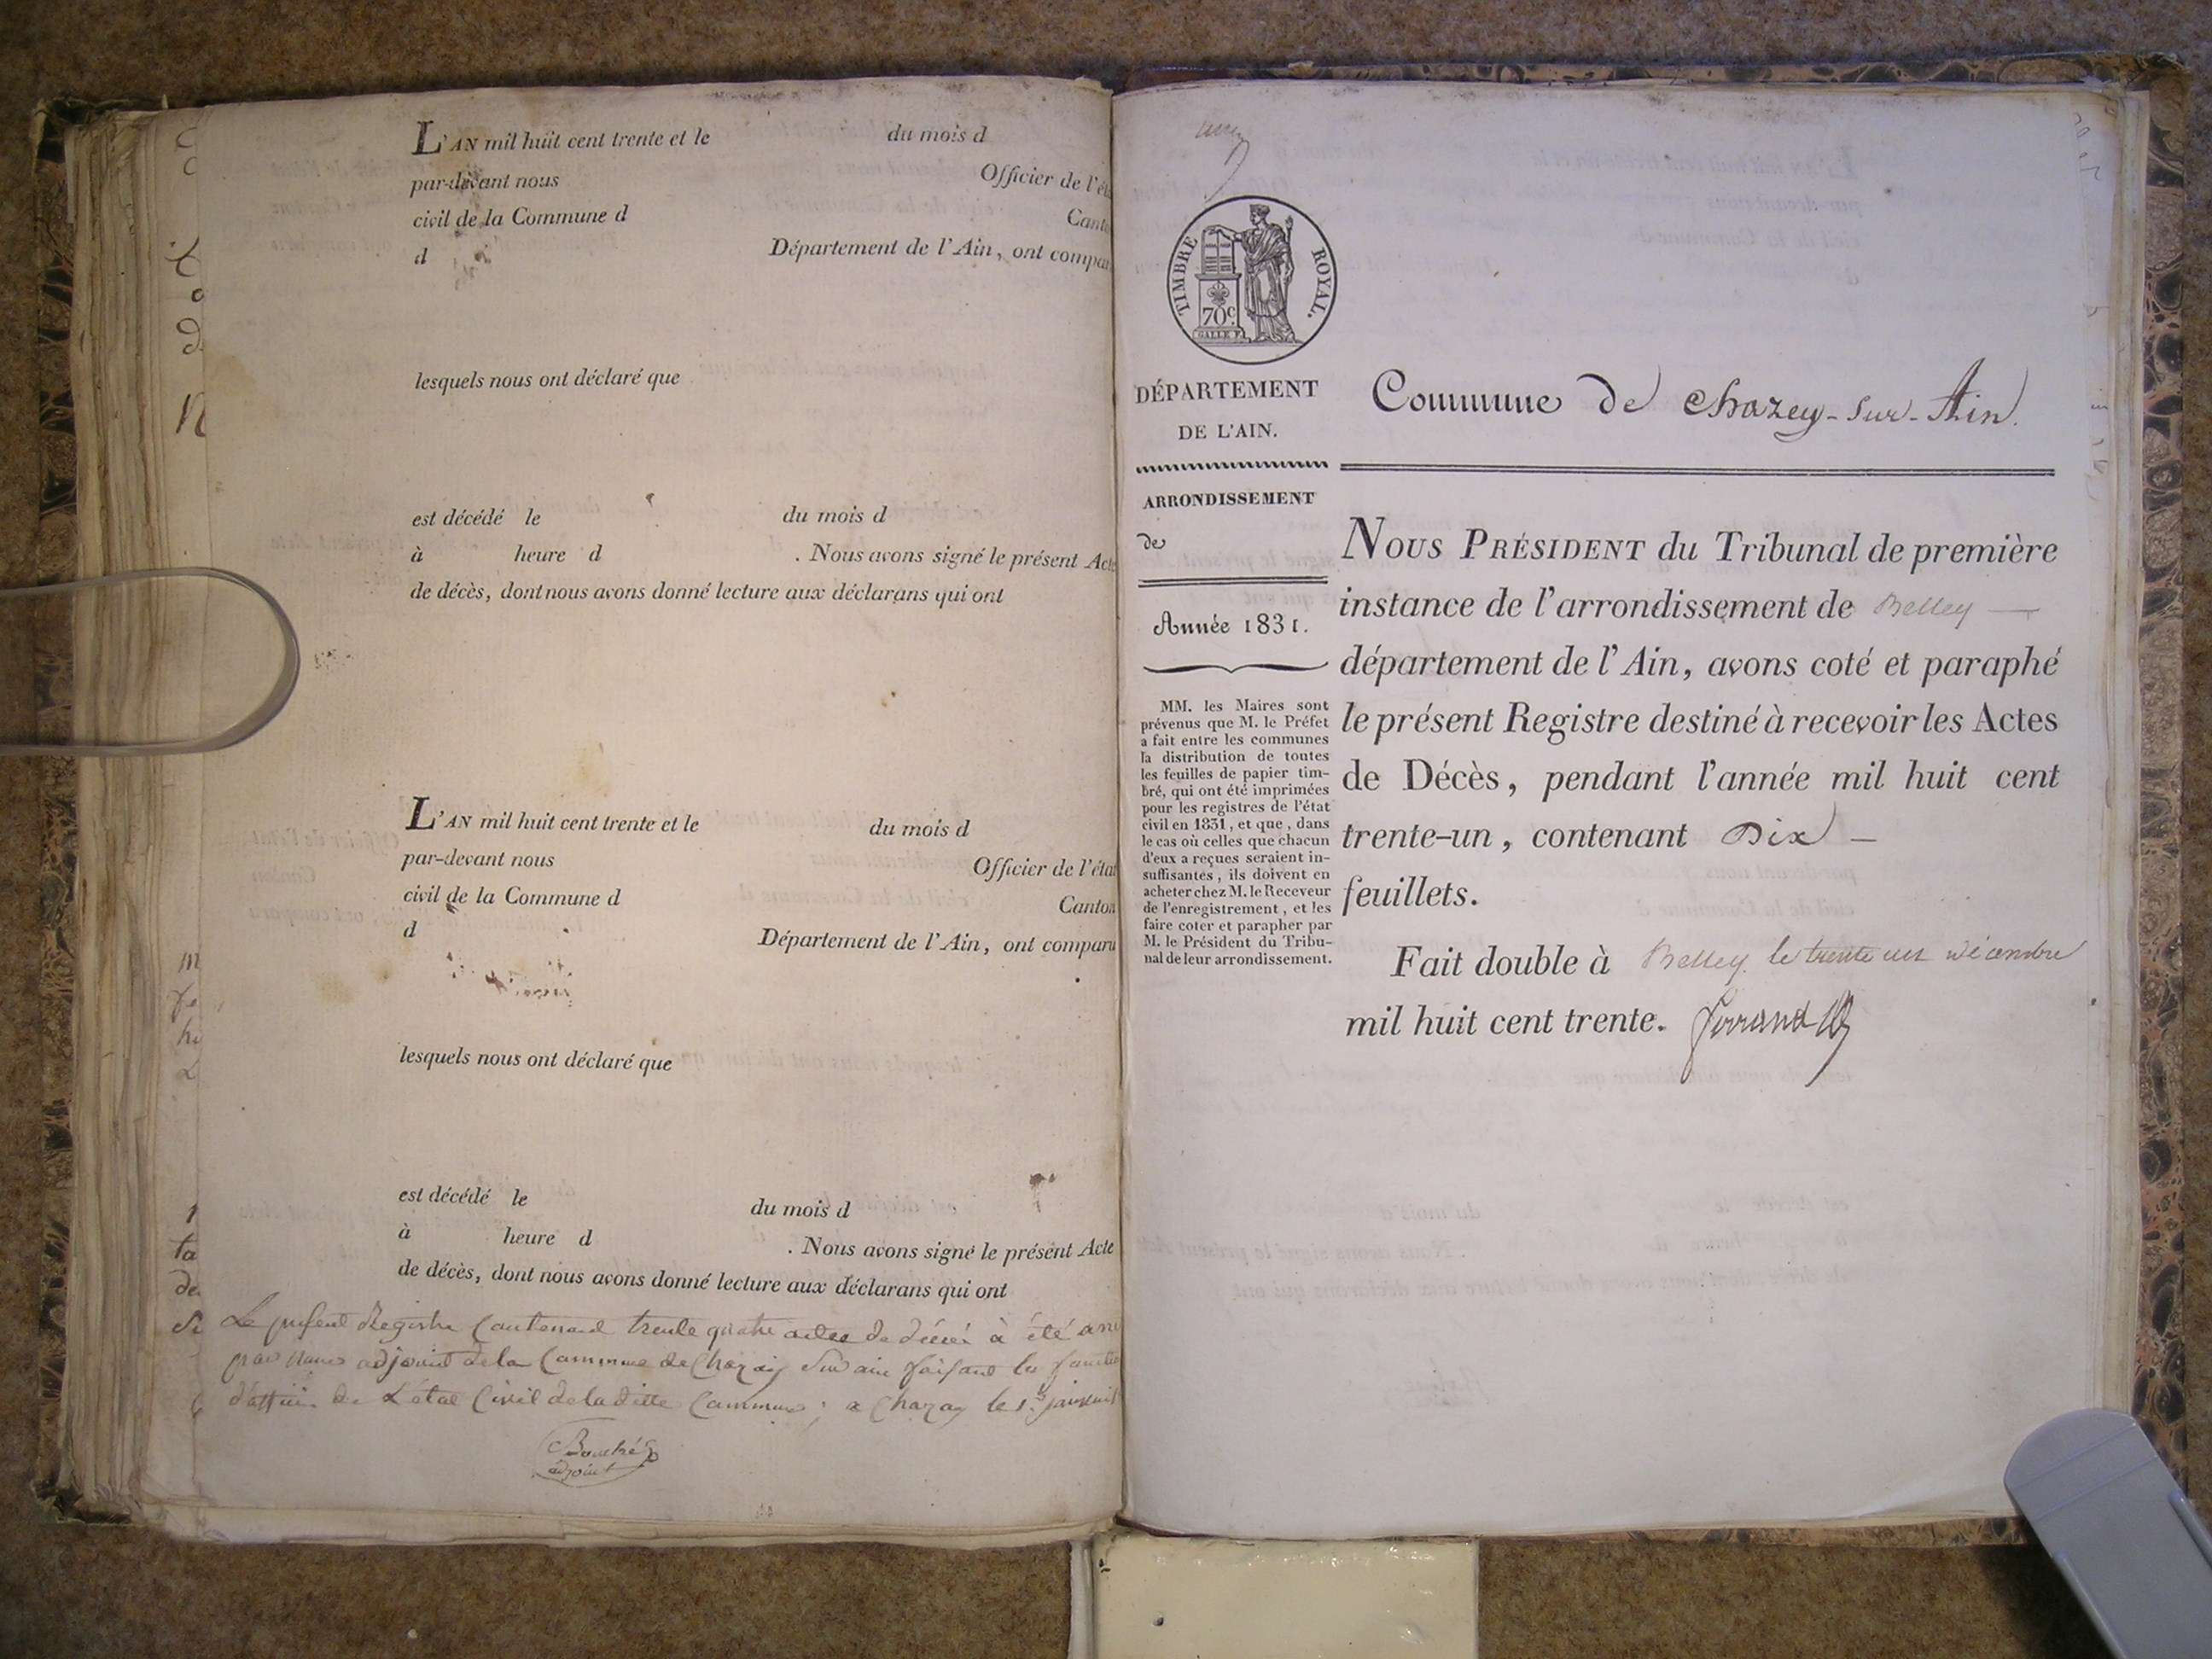 L'AN mil huit cent trente et le du mois d
par-devant nous Officier de l'éta
civil de la Commune d Canto
d Département de l'Ain, ont compar
lesquels nous ont déclaré que
est décédé le du mois d
à heure d . Nous avons signé le présent Acte
de décès, dont nous avons donné lecture aux déclarans qui ont
L'AN mil huit cent trente et le du mois d
par-devant nous Officier de l'état
civil de la Commune d Canton
d Département de l'Ain, ont comparu
lesquels nous ont déclaré que
est décédé le du mois d
à heure d . Nous avons signé le présent Acte
de décès, dont nous avons donné lecture aux déclarans qui ont
Le present Registre Contenant trente quatre actes de décès à été
par nous adjoint de la Commune de Chazey Sur ain faisant les
de L'état Civil de la ditte Commune; a Chazey le 1.er
Bouché
adjoint
TIMBRE ROYAL.
70c
GALLE F.
DÉPARTEMENT
DE L'AIN.
Commune de Chazey-Sur-Ain.
ARRONDISSEMENT
de
Année 1831.
MM. les Maires sont
prévenus que M. le Préfet
a fait entre les communes
la distribution de toutes
les feuilles de papier tim-
bré, qui ont été imprimées
pour les registres de l'état
civil en 1831, et que, dans
le cas où celles que chacun
d'eux a reçues seraient in-
suffisantes, ils doivent en
acheter chez M. le Receveur
de l'enregistrement, et les
faire coter et parapher par
M. le Président du Tribu-
nal de leur arrondissement.
NOUS PRÉSIDENT du Tribunal de première
instance de l'arrondissement de Belley
département de l'Ain, avons coté et paraphé
le présent Registre destiné à recevoir les Actes
de Décès, pendant l'année mil huit cent
trente-un, contenant Dix
feuillets.
Fait double à Belley le trente un décembre
mil huit cent trente.